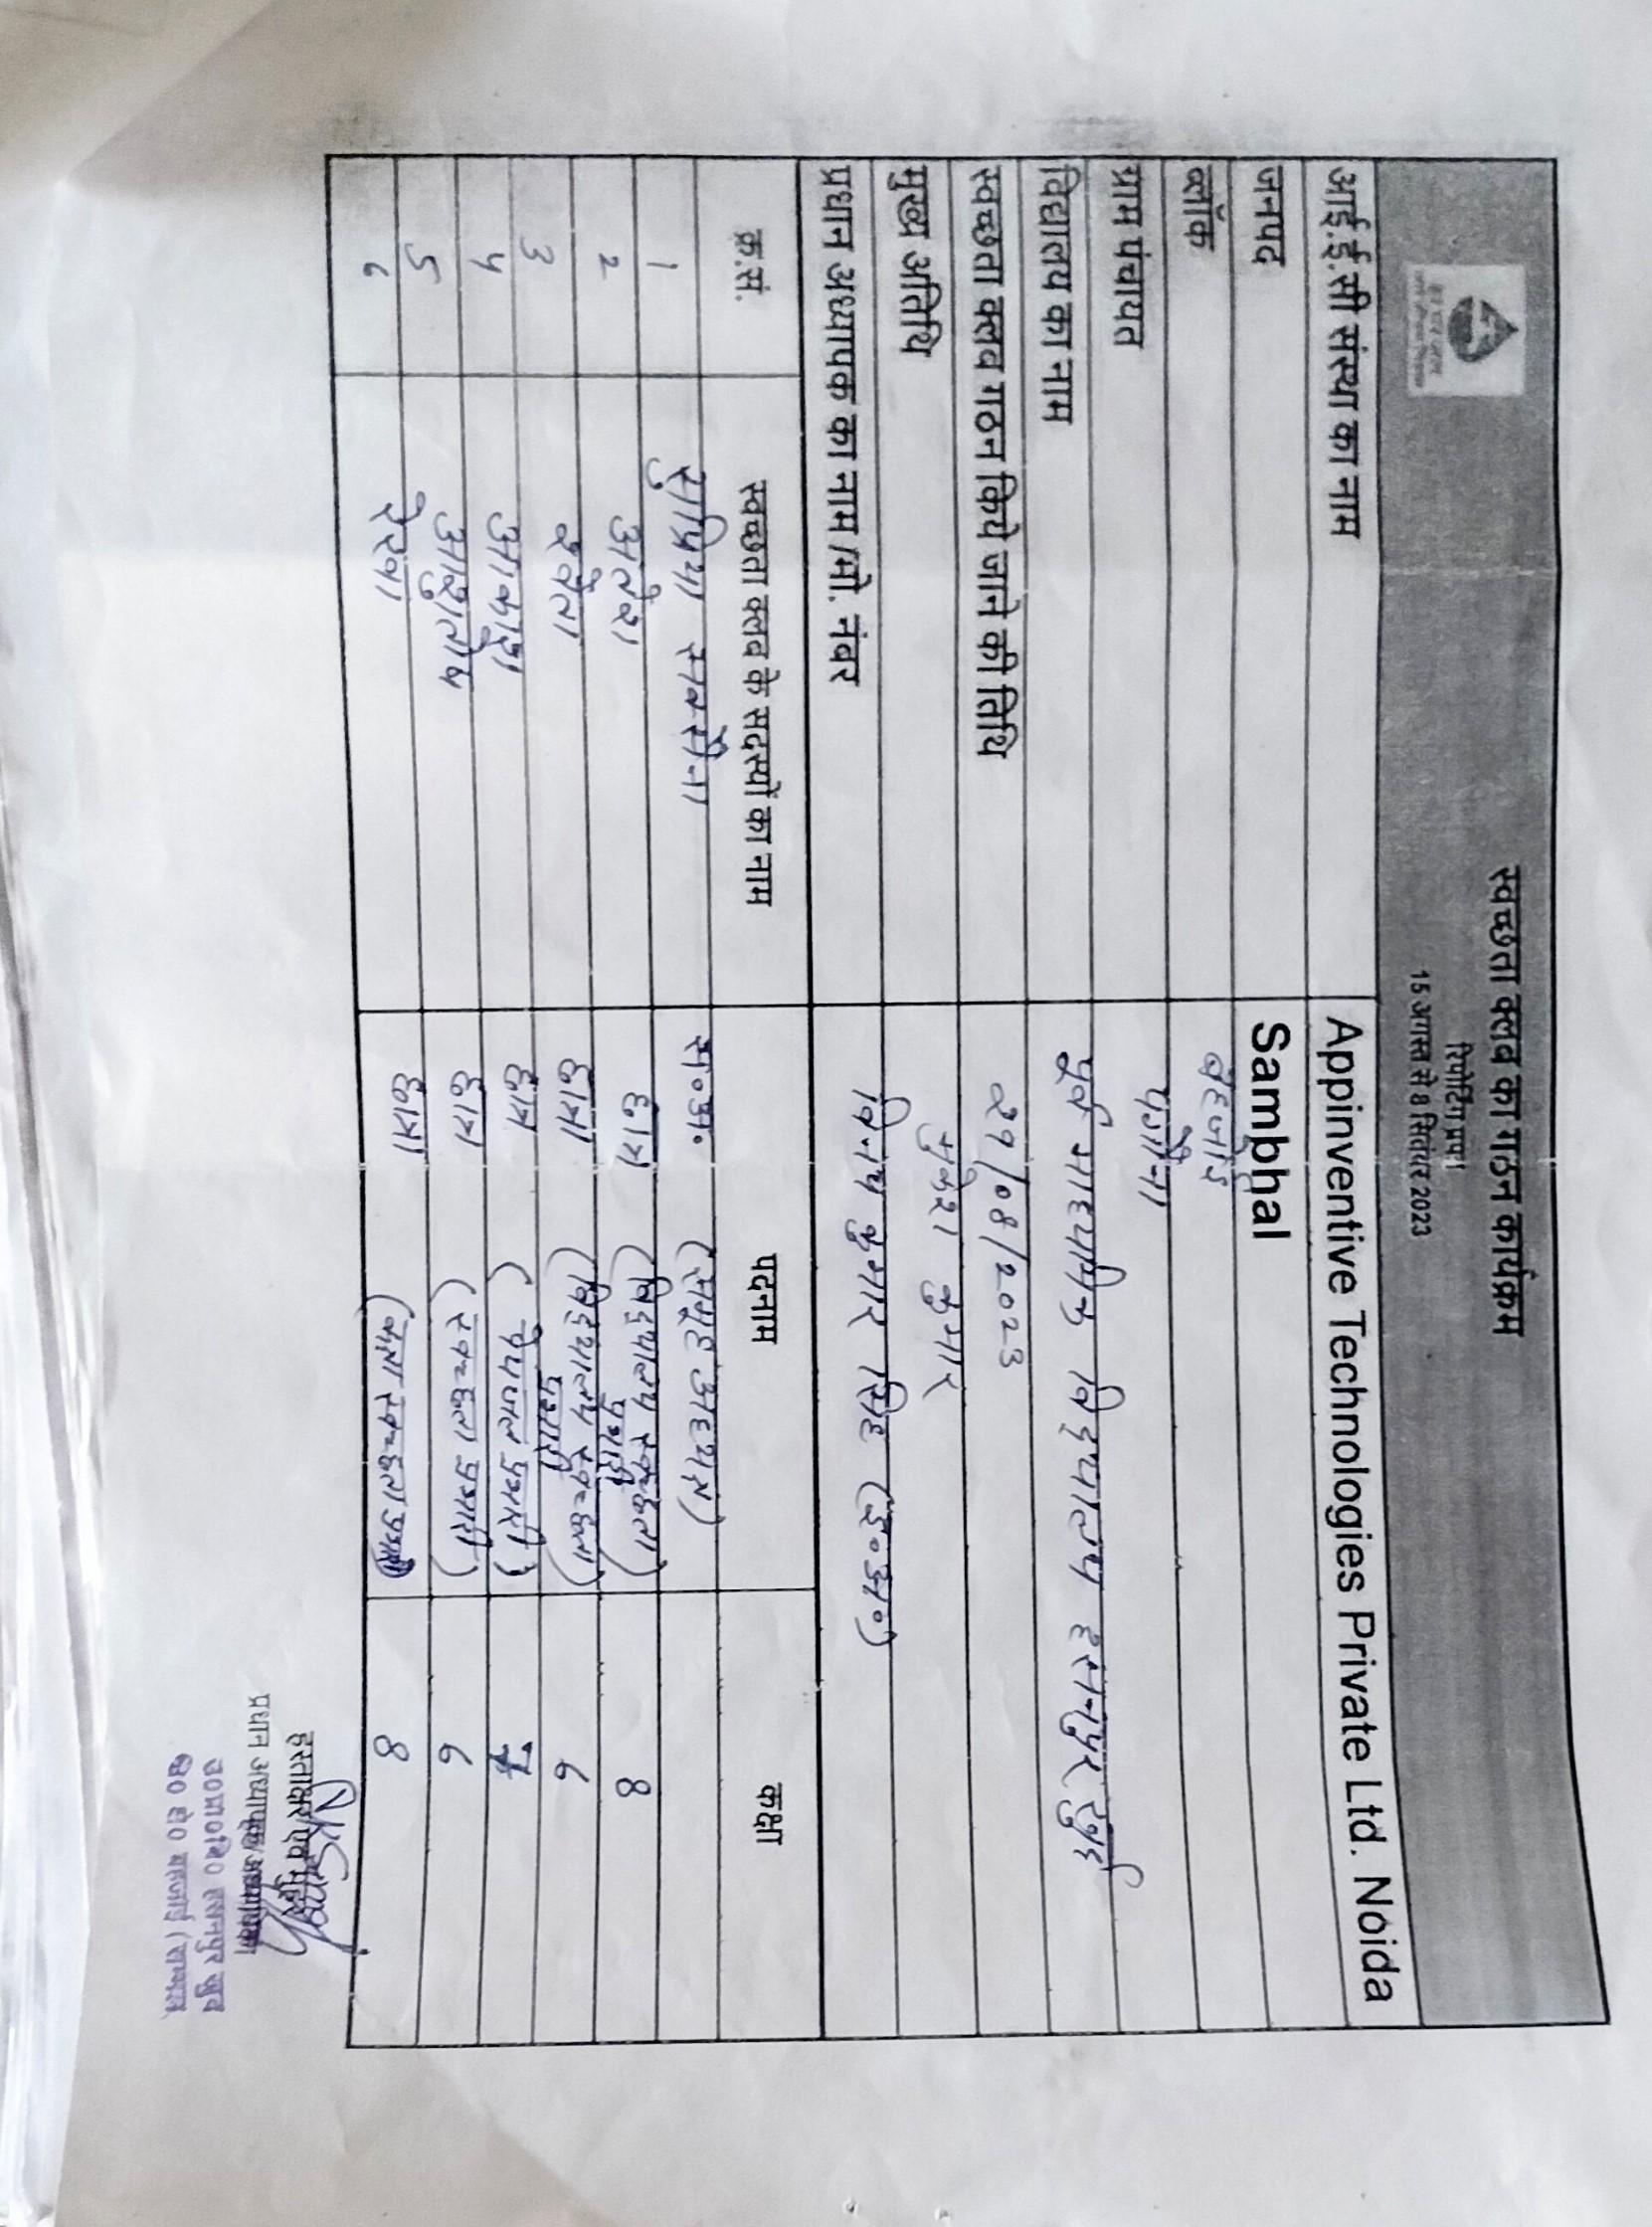 स्वच्छता क्लब का गठन कार्यक्रम
रिपोर्टिंग प्रपत्र
15 अगस्त से 8 सितंबर 2023
आई.ई.सी संस्था का नाम Appinventive Technologies Private Ltd. Noida
जनपद Sambhal
ब्लॉक बहजोई
ग्राम पंचायत
विद्यालय का नाम पूर्व माध्यमिक विद्यालय हसनपुर खुर्द
स्वच्छता क्लव गठन किये जाने की तिथि 29/08/2023
मुख्य अतिथि मुकेश कुमार
प्रधान अध्यापक का नाम /मो. नंबर विनय कुमार सिंह (इ०अ०)
क्र.सं. स्वच्छता क्लव के सदस्यों का नाम पदनाम कक्षा
1 सुप्रिया सक्सैना स०अ० (समूह अध्यक्ष)
2 अलेश छात्र (विद्यालय स्वच्छता प्रभारी) 8
3 श्वेता छात्रा (विद्यालय स्वच्छता प्रभारी) 6
4 आकाश छात्र (पेयजल प्रभारी) 7
5 आशुतोष छात्र (स्वच्छता प्रभारी) 6
6 रेखा छात्रा (कक्षा स्वच्छता प्रभारी) 8
हस्ताक्षर एवं मुहर
प्रधान अध्यापक/अध्यापिका
उ०प्रा०वि० हसनपुर खुर्द
बहजोई (सम्भल)